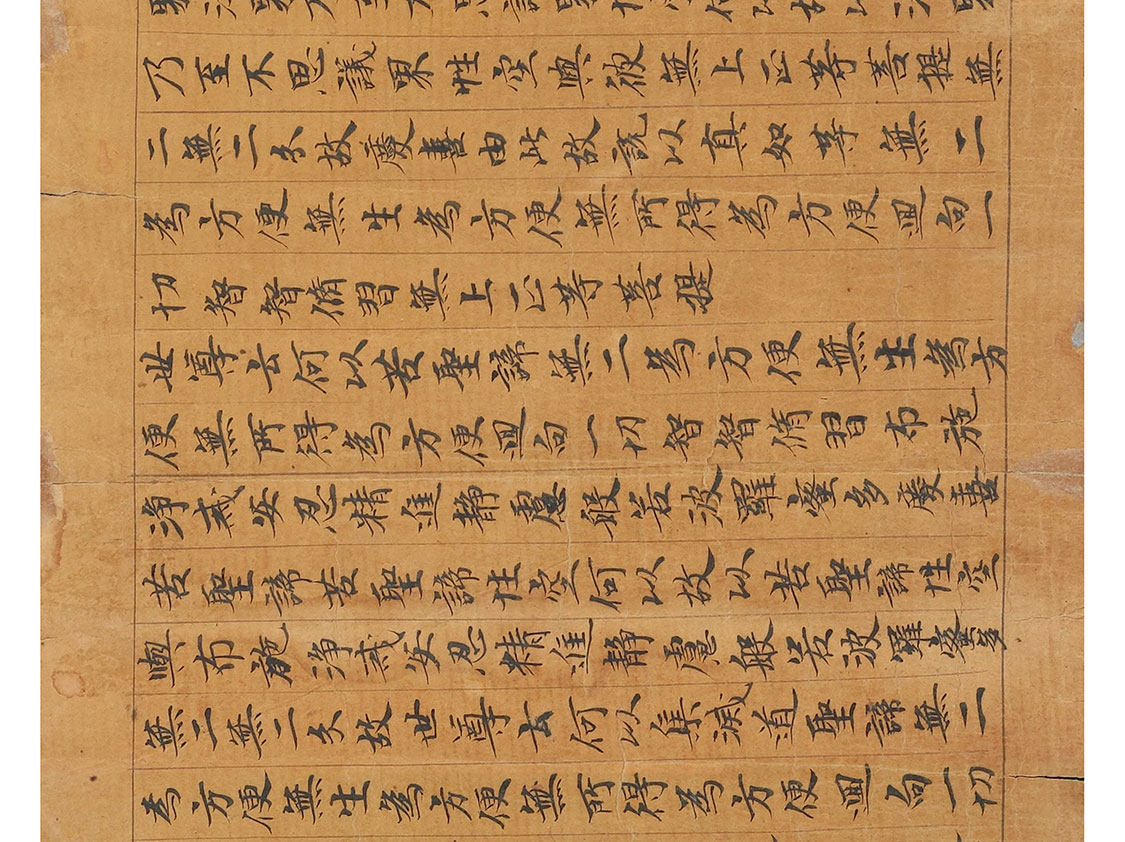 乃至不思議界性空與彼無上正等菩提無
二無二分故慶喜由此故説以真如等無二
為方便無生為方便無所得為方便迴向一
切智智脩習無上正等菩提
世尊云何以苦聖諦無二為方便無生為方
便無所得為方便迴向一切智智脩習布施
淨戒安忍精進靜慮般若波羅蜜多慶喜
苦聖諦苦聖諦性空何以故以苦聖諦性空
與布施淨戒安忍精進靜慮般若波羅蜜多
無二無二分故世尊云何以集滅道聖諦無二
為方便無生為方便無所得為方便迴向一切